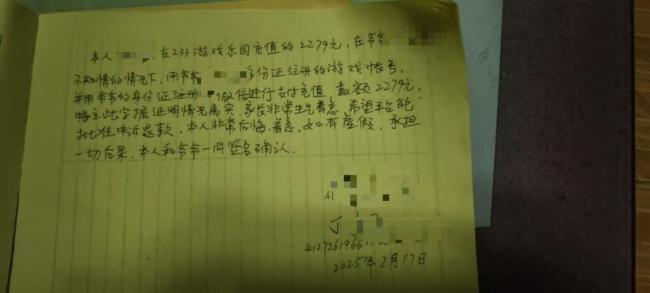 本人 在233游戏乐园充值的2279元,在爷爷
不知情的情况下,用爷爷 身份证注册的游戏账号,
并用爷爷的身份证注册 微信进行支付充值,数额2279元,
特立此字据证明情况属实,家长非常生气着急,希望平台能
批准申诉退款,本人非常后悔,着急,如有虚假,承担
一切后果,本人和爷爷一同签名确认.
41
丁
412726196611
2025年2月17日